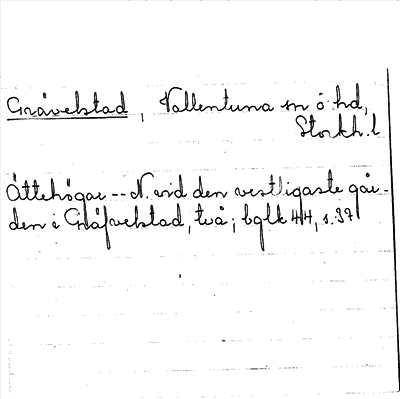 Gråvelstad, Vallentuna sn o hd,
Stockh.l
Ättehögar -- N. vid den vestligaste går-
den i Gråfvelstad, två; bglk 44, s. 37